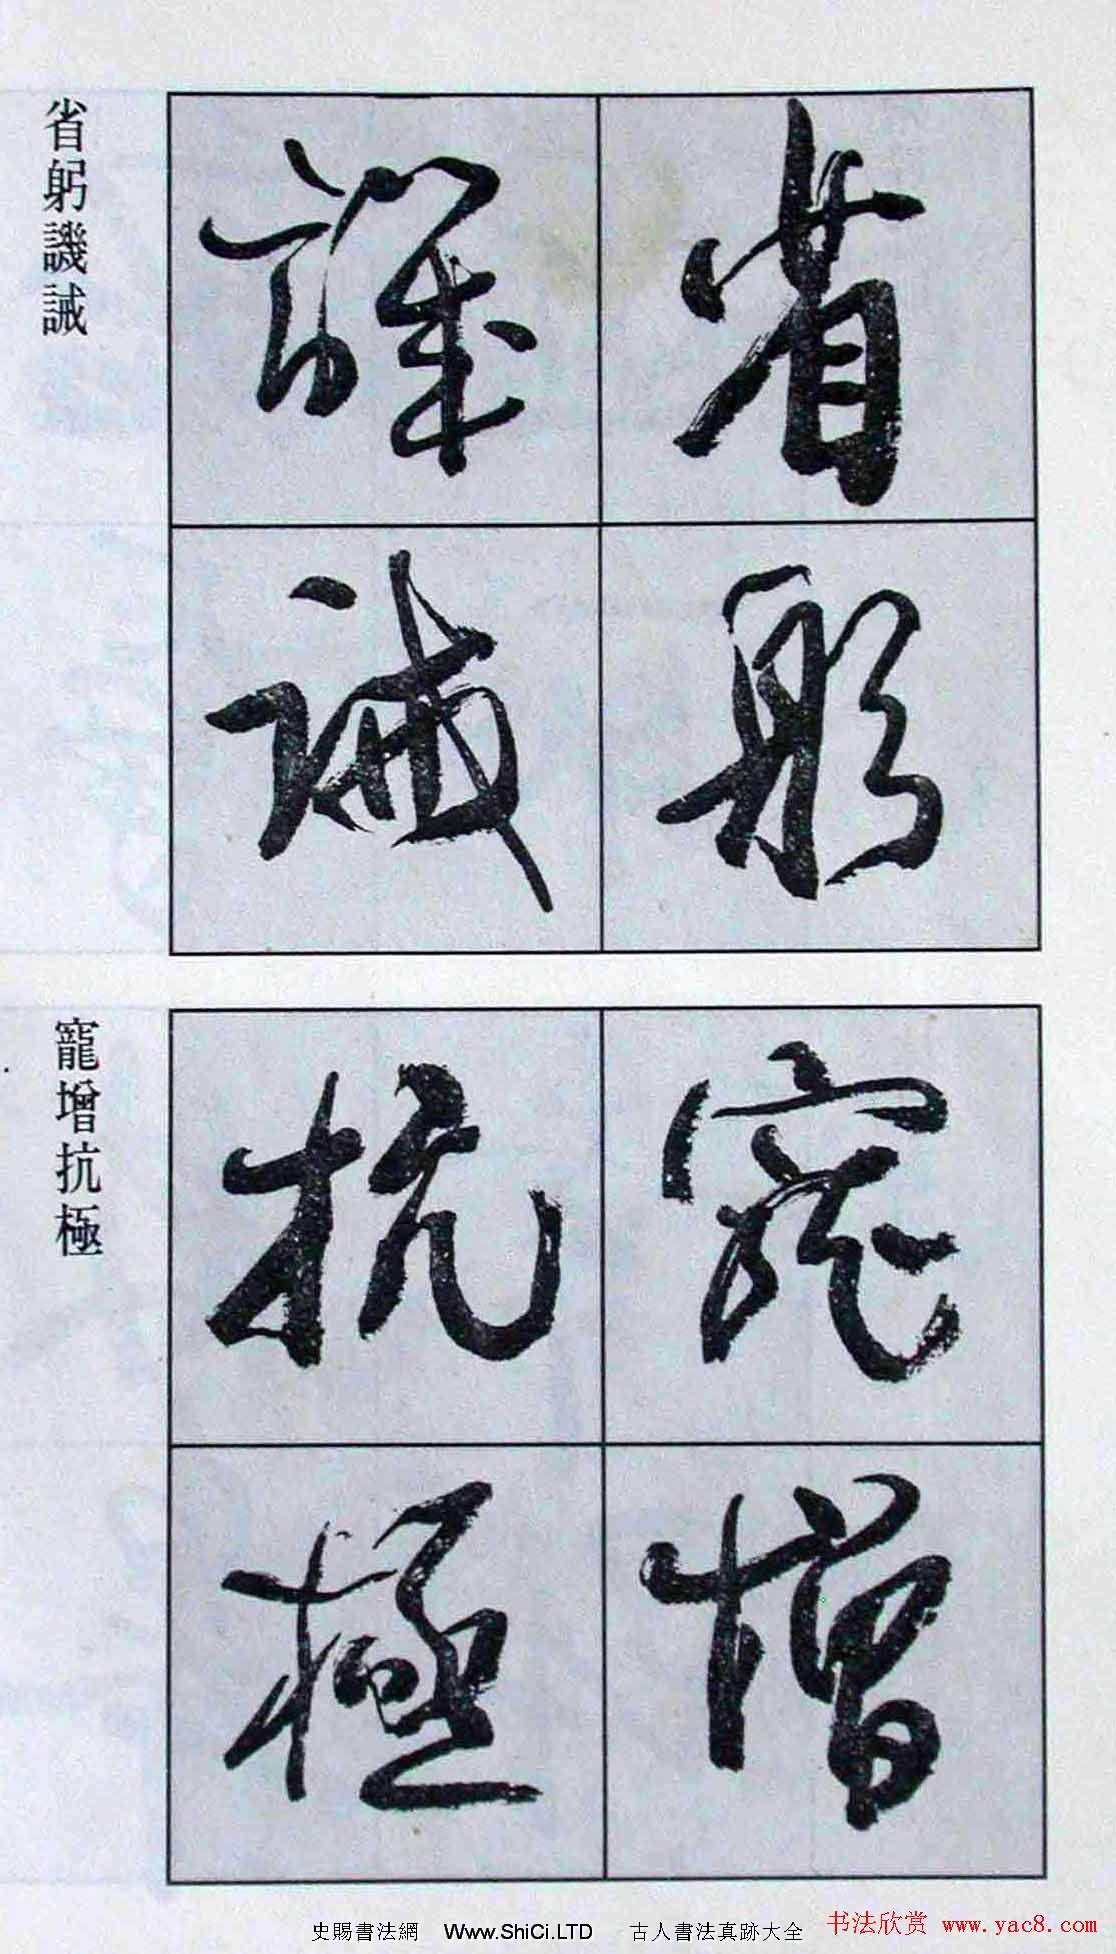 省躬譏誡
省躬
譏誡
寵增抗極
寵增
抗極
史賜書法網 Www.ShiCi.LTD 古人書法真跡大全
书法欣赏 www.yac8.com